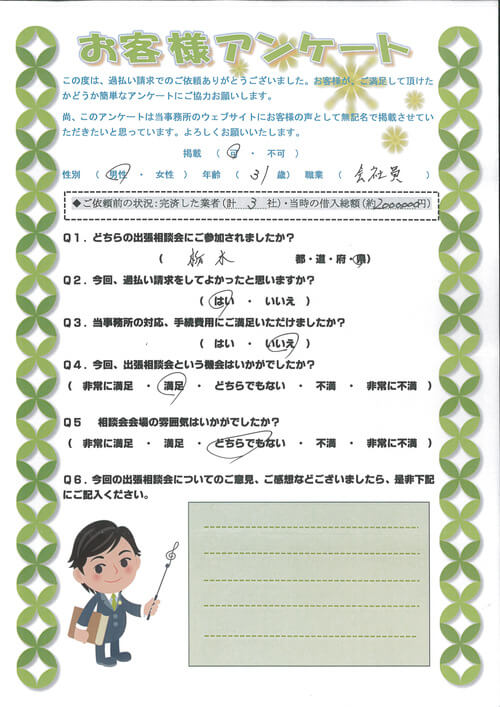 お客様アンケート
この度は、過払い請求でのご依頼ありがとうございました。お客様が、ご満足して頂けた
かどうか簡単なアンケートにご協力お願いします。
尚、このアンケートは当事務所のウェブサイトにお客様の声として無記名で掲載させてい
ただきたいと思っています。よろしくお願いいたします。
掲載 （ 可 ・ 不可 ）
性別 （ 男性 ・ 女性 ） 年齢 （ 31 歳） 職業 （ 会社員 ）
◆ご依頼前の状況：完済した業者（計 3 社）・当時の借入総額（約2000000円）
Q1．どちらの出張相談会にご参加されましたか？
（ 栃木 都・道・府・県）
Q2．今回、過払い請求をしてよかったと思いますか？
（ はい ・ いいえ ）
Q3．当事務所の対応、手続費用にご満足いただけましたか？
（ はい ・ いいえ ）
Q4．今回、出張相談会という機会はいかがでしたか？
（ 非常に満足 ・ 満足 ・ どちらでもない ・ 不満 ・ 非常に不満 ）
Q5 相談会会場の雰囲気はいかがでしたか？
（ 非常に満足 ・ 満足 ・ どちらでもない ・ 不満 ・ 非常に不満 ）
Q6．今回の出張相談会についてのご意見、ご感想などございましたら、是非下記
にご記入ください。